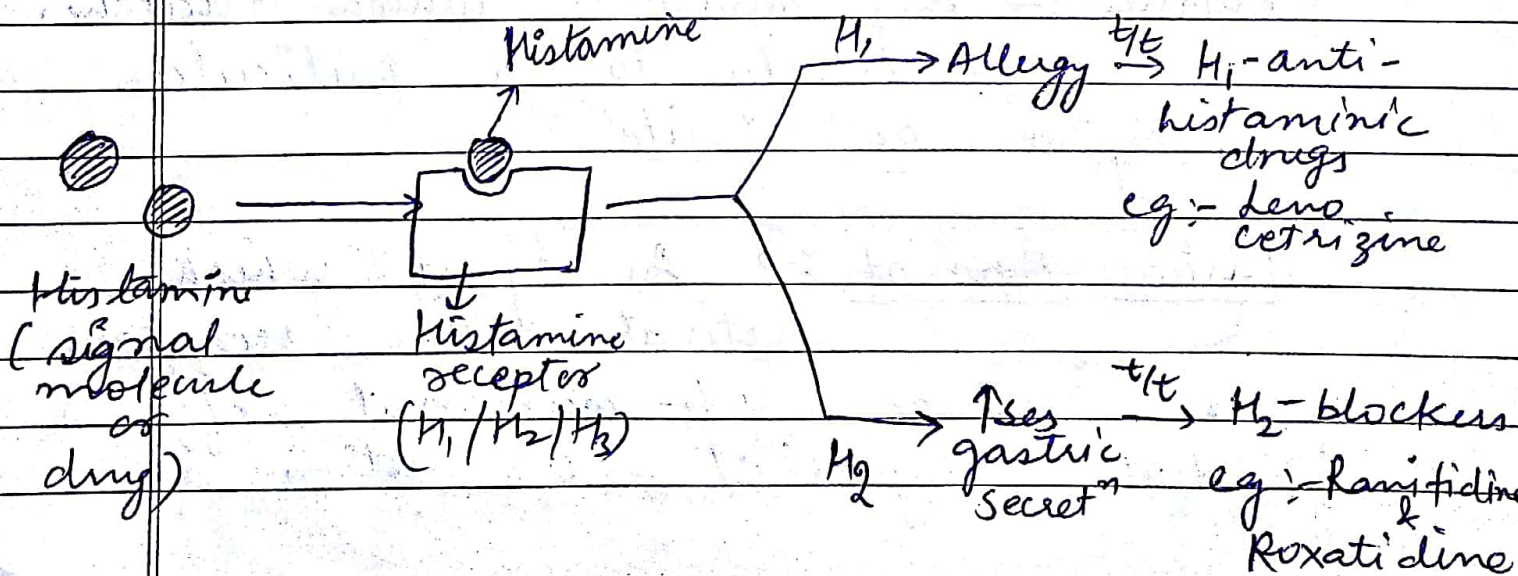 Histamine
H₁ → Allergy t/t → H₁-anti-
histaminic
drugs
eg:- Levo
cetrizine
Histamine
(signal
molecule
or
drug)
Histamine
receptor
(H₁/H₂/H₃)
H₂ → ↑ses
gastric
secretⁿ
t/t → H₂-blockers
eg:- Ranitidine
&
Roxatidine